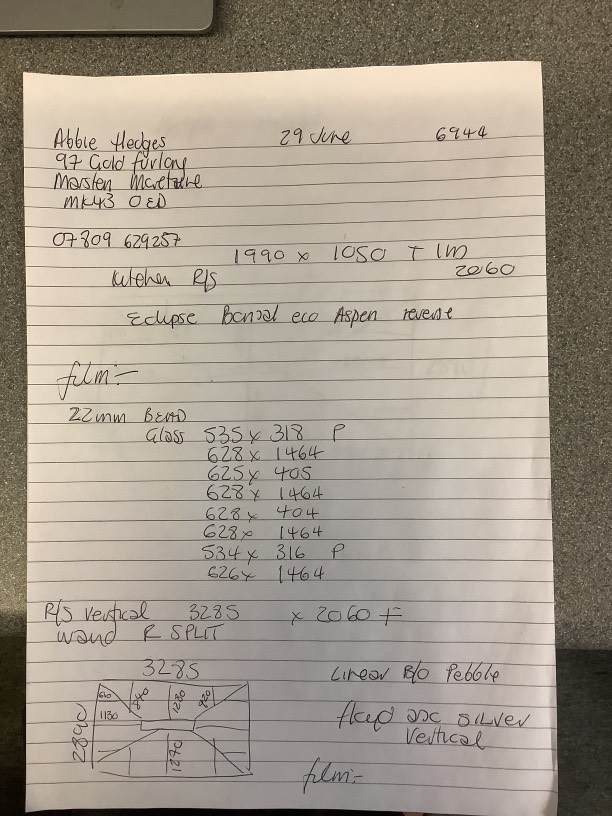 Abbie Hedges 29 June 6944
97 Gold furlong
Marston
MK43 0ED
07809 629257
1990 x 1050 T 1m
2060
Kitchen R/S
Eclipse Bonsai eco Aspen reverse
film:-
22mm BEAD
Glass 535 x 318 P
628 x 1464
625 x 405
628 x 1464
628 x 404
628 x 1464
534 x 316 P
626 x 1464
R/S vertical 3285 x 2060 F
wand R SPLIT
3285
Linear B/O Pebble
610 840 1280 820
1130
2890
silver
vertical
1270
film:-